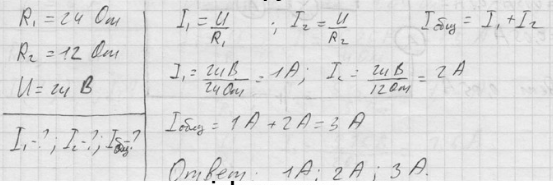 R₁ = 24 Ом
R₂ = 12 Ом
U = 24 В
I₁-?; I₂-?; Iобщ-?
I₁ = U/R₁ ; I₂ = U/R₂ Iобщ = I₁ + I₂
I₁ = 24В/24Ом = 1А; I₂ = 24В/12Ом = 2А
Iобщ = 1А + 2А = 3А
Ответ: 1А; 2А; 3А.